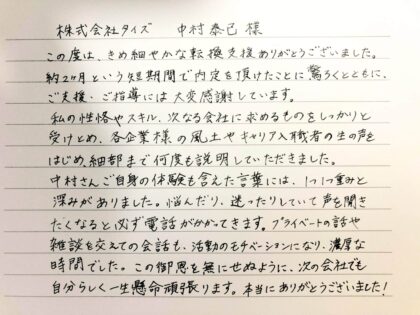 株式会社タイズ 中村泰己様
この度は、きめ細やかな転換支援ありがとうございました。
約2ヶ月という短期間で内定を頂けたことに驚ろくとともに、
ご支援・ご指導には大変感謝しています。
私の性格やスキル、次なる会社に求めるものをしっかりと
受けとめ、各企業様の風土やキャリア入職者の生の声を
はじめ、細部まで何度も説明していただきました。
中村さんご自身の体験も含えた言葉には、1つ1つ重みと
深みがありました。悩んだり、迷ったりしていて声を聞き
たくなると必ず電話がかかってきます。プライベートの話や
雑談を交えての会話も、活動のモチベーションになり、濃厚な
時間でした。この御恩を無にせぬように、次の会社でも
自分らしく一生懸命頑張ります。本当にありがとうございました!